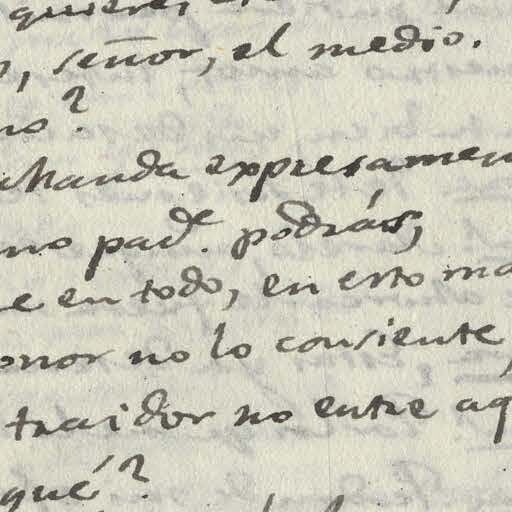 quiere,
señor, el medio.
no?
Manda expresamen
no pad.e podrás,
e en todo, en esto ma
onor no lo consiente,
traidor no entre aq
qué?